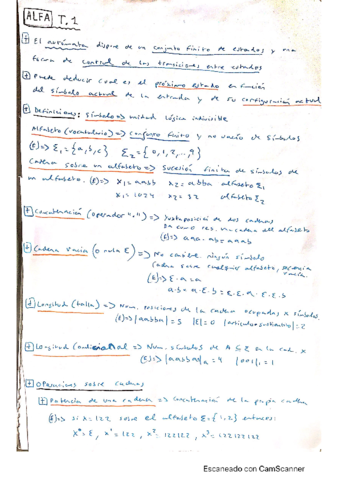 ALFA T.1
El autómata dispone de un conjunto finito de estados y una
forma de control de las transiciones entre estados
Puede deducir cual es el próximo estado en función
del símbolo actual de la entrada y de su configuración actual
Definiciones: símbolo => unidad lógica indivisible
Alfabeto (vocabulario) => conjunto finito y no vacío de símbolos
(E) => Σ₁ = {a, b, c} Σ₂ = {0, 1, 2, ..., 9}
Cadena sobre un alfabeto => Sucesión finita de símbolos de
un alfabeto. (E) => x₁ = aabb x₂ = abba alfabeto Σ₁
x₁ = 1024 x₂ = 32 alfabeto Σ₂
Concatenación (operador ".") => Juxtaposición de dos cadenas
da como res. una cadena del alfabeto
(E) =>
Cadena vacía (o nula ε) => No contiene ningún símbolo
Cadena sobre cualquier alfabeto,
(E) => ε.a = a
a.b = a.ε.b = ε.ε.a.ε.ε.b
Longitud (talla) => Num. posiciones de la cadena ocupadas x símbolos
(E) => |aabba| = 5 |ε| = 0
Longitud => Num. símbolos de A ⊆ Σ en la cad. x
= 4 |001|₁ = 1
Operaciones sobre cadenas
Potencia de una cadena => concatenación de la propia cadena
(E) => si x = 122 sobre el alfabeto Σ = {1, 2} entonces:
x⁰ = ε, x¹ = 122, x² = 122122, x³ = 122122122
Escaneado con CamScanner